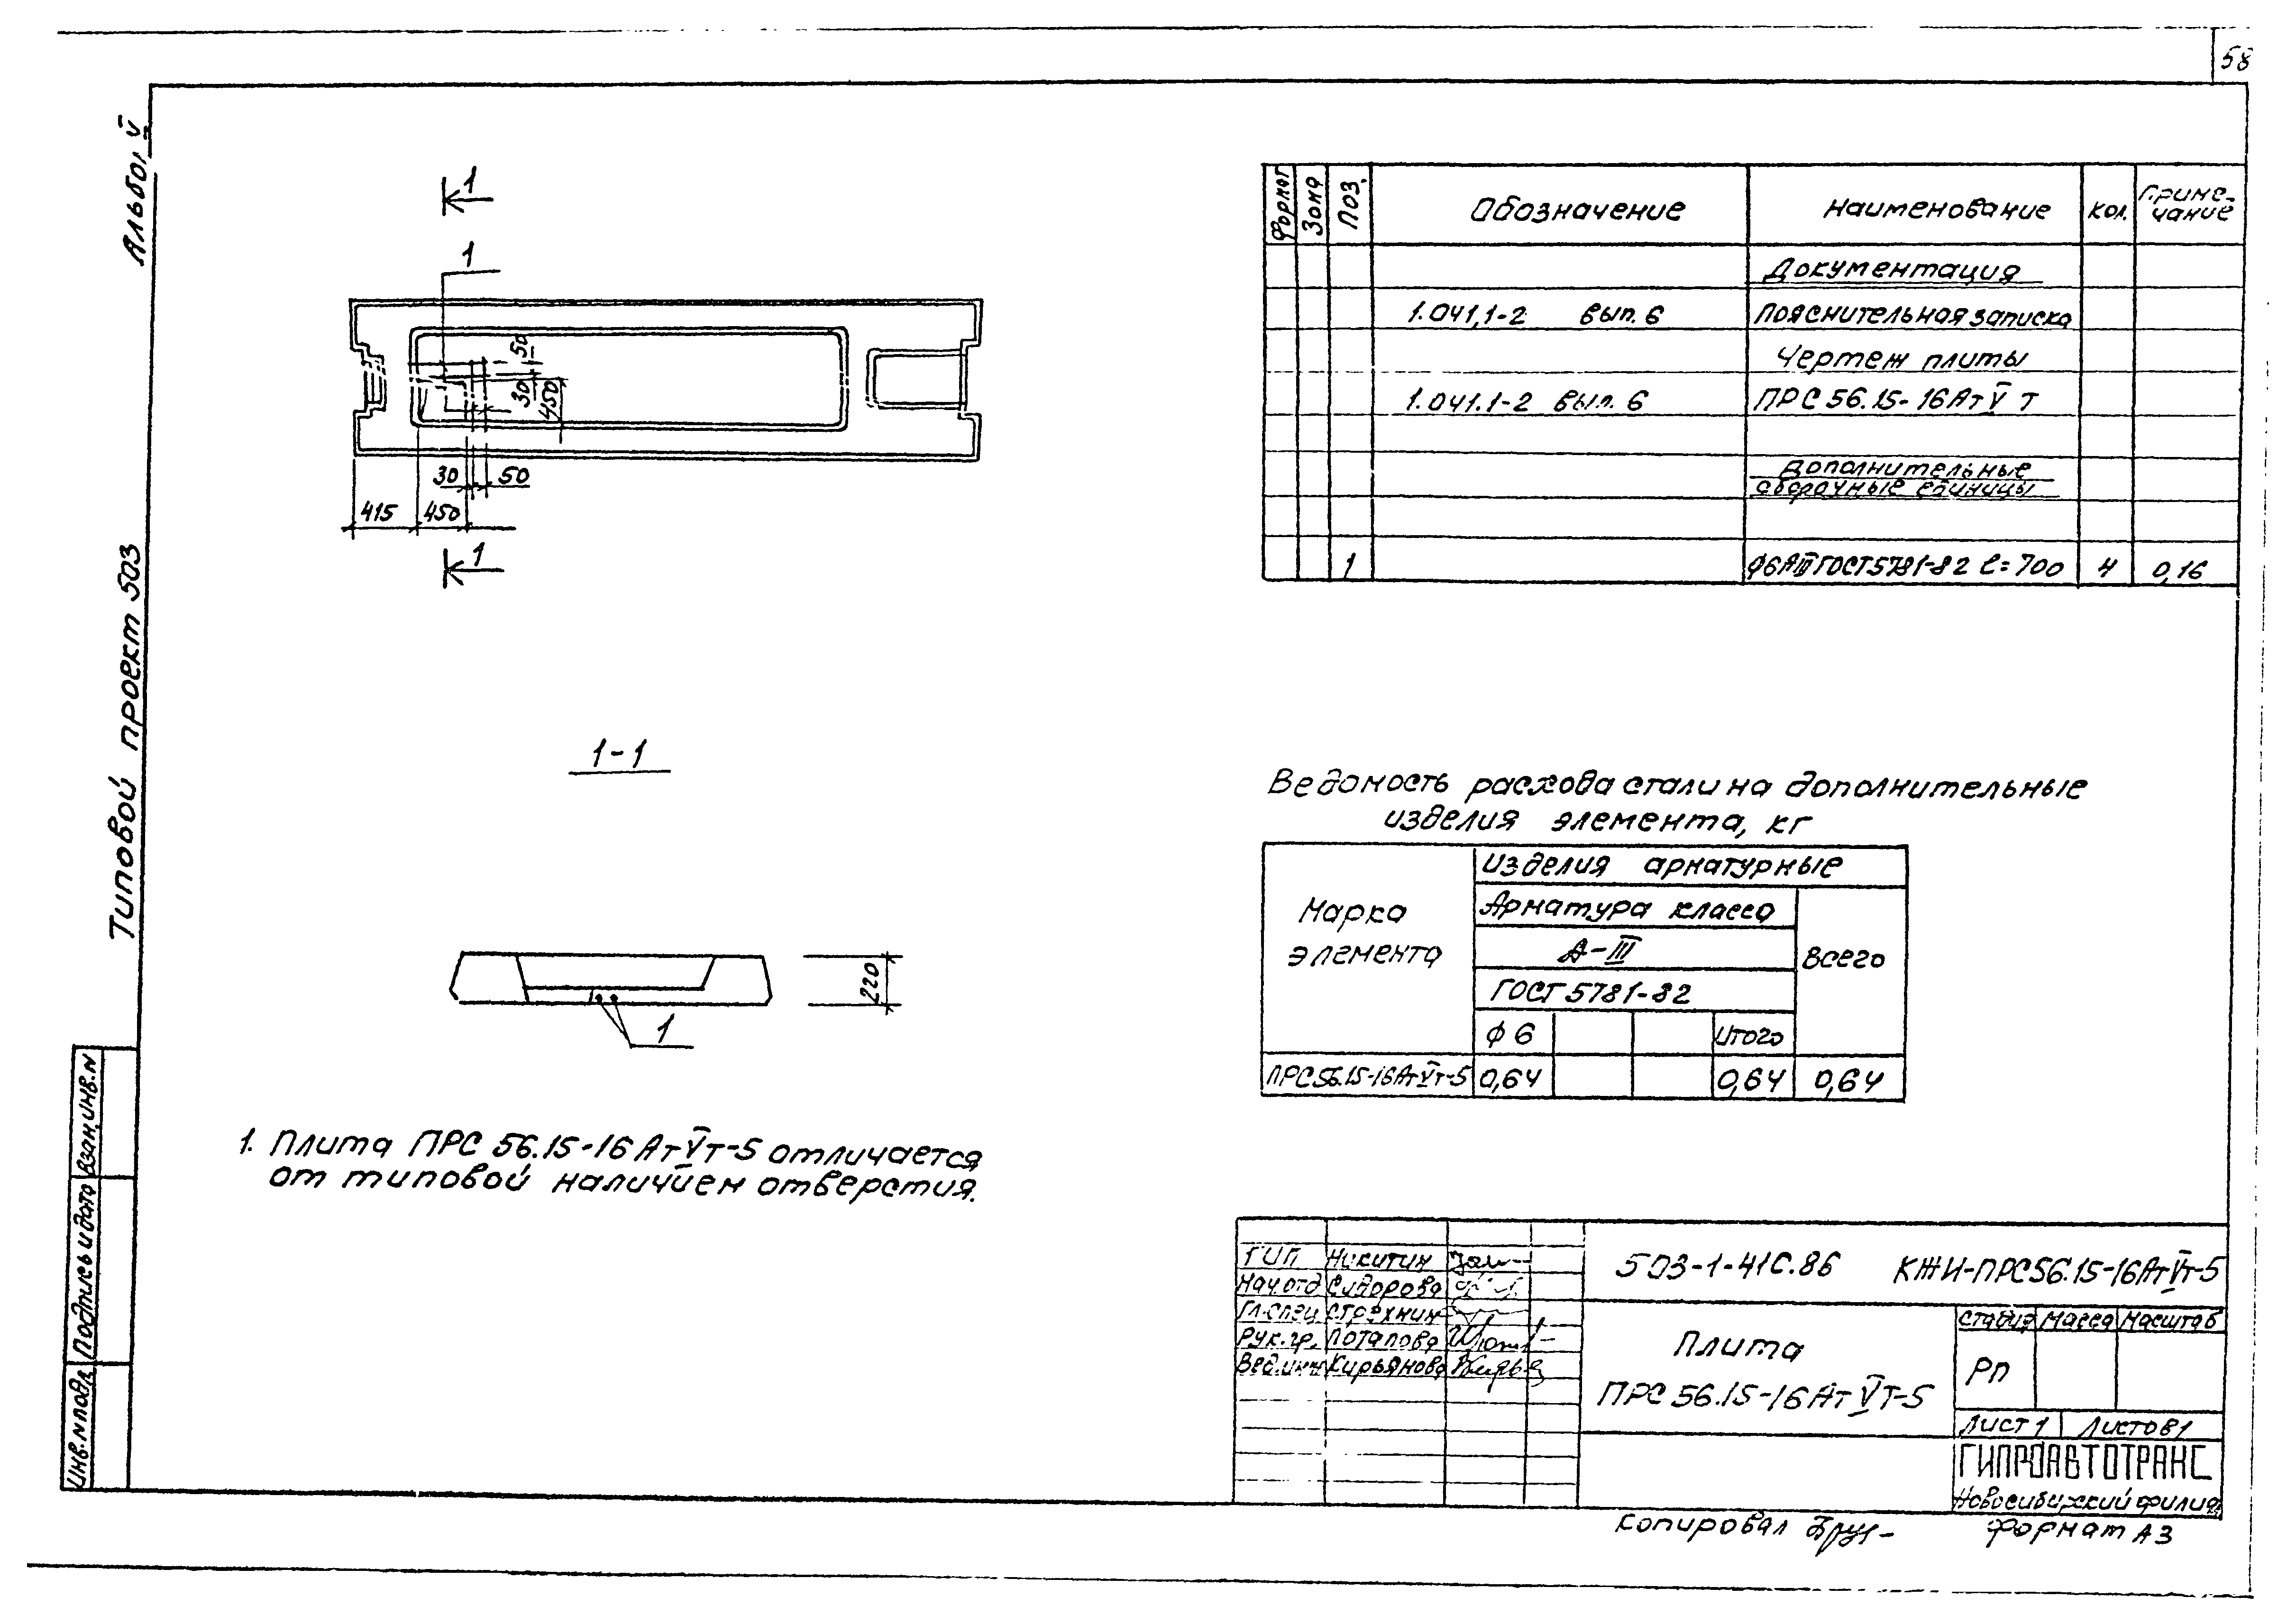 58
Альбом V
Типовой проект 503
1
1
50
30
450
30
50
415
450
1
1-1
220
1
1. Плита ПРС 56.15-16 АтVт-5 отличается
от типовой наличием отверстия.
Формат
Зона
Поз.
Обозначение
Наименование
Кол.
Приме-
чание
Документация
1.041.1-2 вып. 6
Пояснительная записка
Чертеж плиты
1.041.1-2 вып. 6
ПРС 56.15-16АтV т
Дополнительные
сборочные единицы
1
ф6АIII ГОСТ5781-82 ℓ=700
4
0,16
Ведомость расхода стали на дополнительные
изделия элемента, кг
Марка
элемента
Изделия арматурные
Арматура класса
А-III
ГОСТ 5781-82
Всего
ф 6
Итого
ПРС56.15-16АтVт-5
0,64
0,64
0,64
ГИП Никитин
Нач.отд Сидорова
Гл.спец
Рук.гр. Потапова
Вед.инж Кирьянова
503-1-41С.86 КЖИ-ПРС56.15-16АтVт-5
Плита
ПРС 56.15-16Ат VТ-5
Стадия
Масса
Масштаб
РП
Лист 1
Листов 1
ГИПРОАВТОТРАНС
Новосибирский филиал
Копировал
Формат А3
Взам.инв.N
Подпись и дата
Инв.N подл.